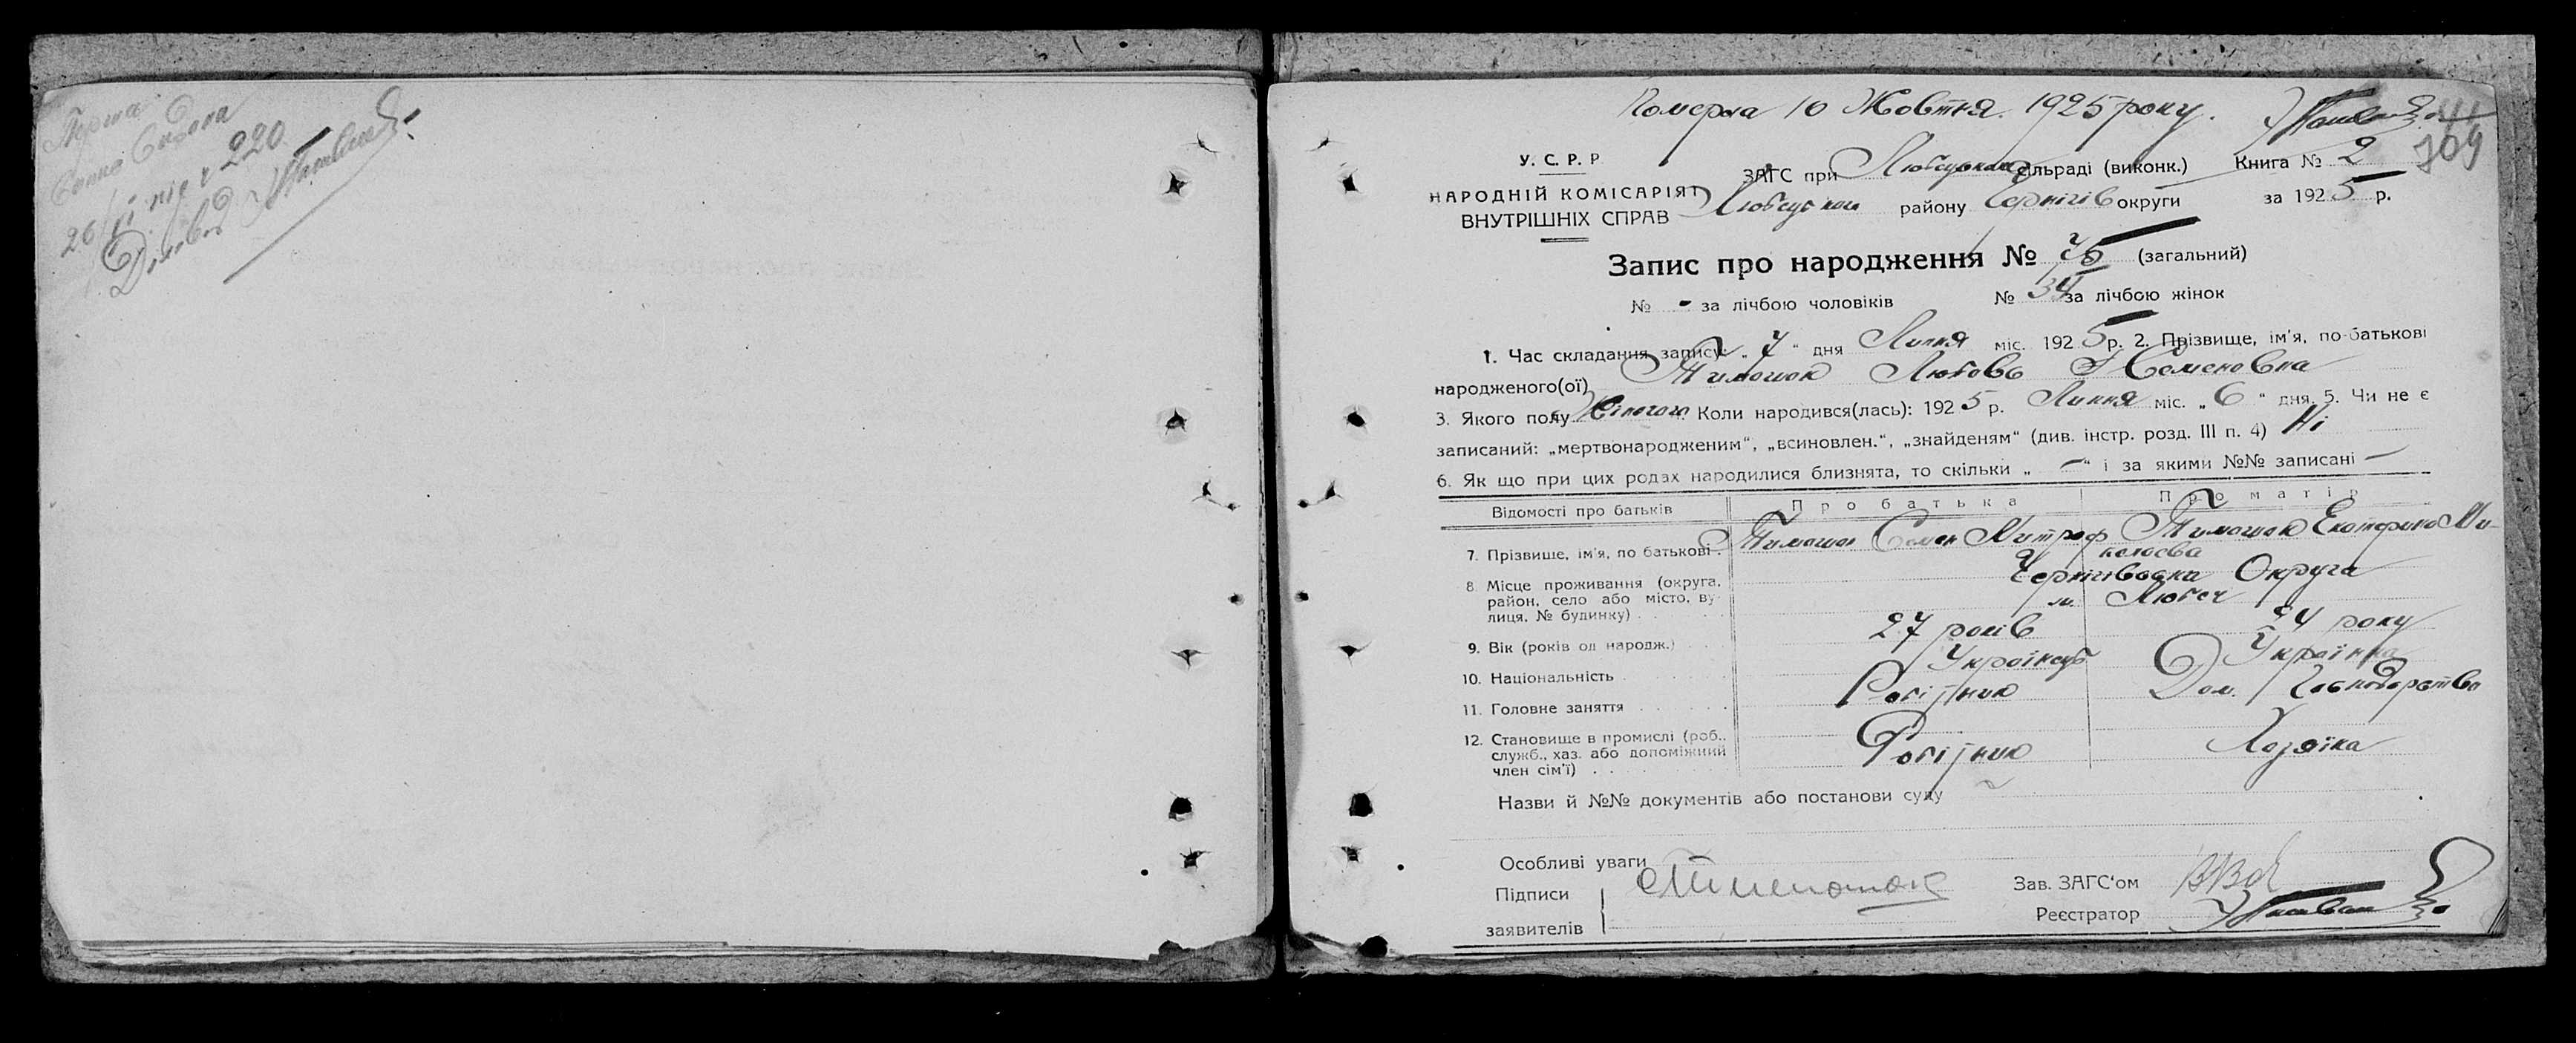 26/
220
Померла 10 Жовтня 1925 року.
109
У. С. Р. Р
ЗАГС при Любецькій сільраді (виконк.) Книга № 2
НАРОДНІЙ КОМІСАРІЯТ
ВНУТРІШНІХ СПРАВ
Любецького району Чернігів округи за 1925 р.
Запис про народження № 75 (загальний)
№ - за лічбою чоловіків № 34 за лічбою жінок
1. Час складання запису: „ 7 “ дня Липня міс. 1925 р. 2. Прізвище, ім'я, по-батькові
народженого(ої) Тимошок Любовь Семеновна
3. Якого полу Жіночого Коли народився(лась): 1925 р. Липня міс. „ 6 “ дня. 5. Чи не є
записаний: „мертвонародженим“, „всиновлен.“, „знайденям“ (див. інстр. розд. III п. 4) Ні
6. Як що при цих родах народилися близнята, то скільки „ — “ і за якими №№ записані —
Відомості про батьків Про батька Про матір
7. Прізвище, ім'я, по батькові. Тимошок Семен Митроф Тимошок Екатерина Ми-
колаєва
8. Місце проживання (округа, район, село або місто, ву-лиця, № будинку) Чернігівська Округа
м. Любеч
9. Вік (років од народж.) 27 років 24 року
10. Національність Українець Українка
11. Головне заняття Робітник Дом. Господарство
12. Становище в промислі (роб., служб., хаз. або допоміжний член сім'ї) Робітник Хозяїка
Назви й №№ документів або постанови суду
Особливі уваги
Підписи
заявителів
Зав. ЗАГС'ом
Реєстратор